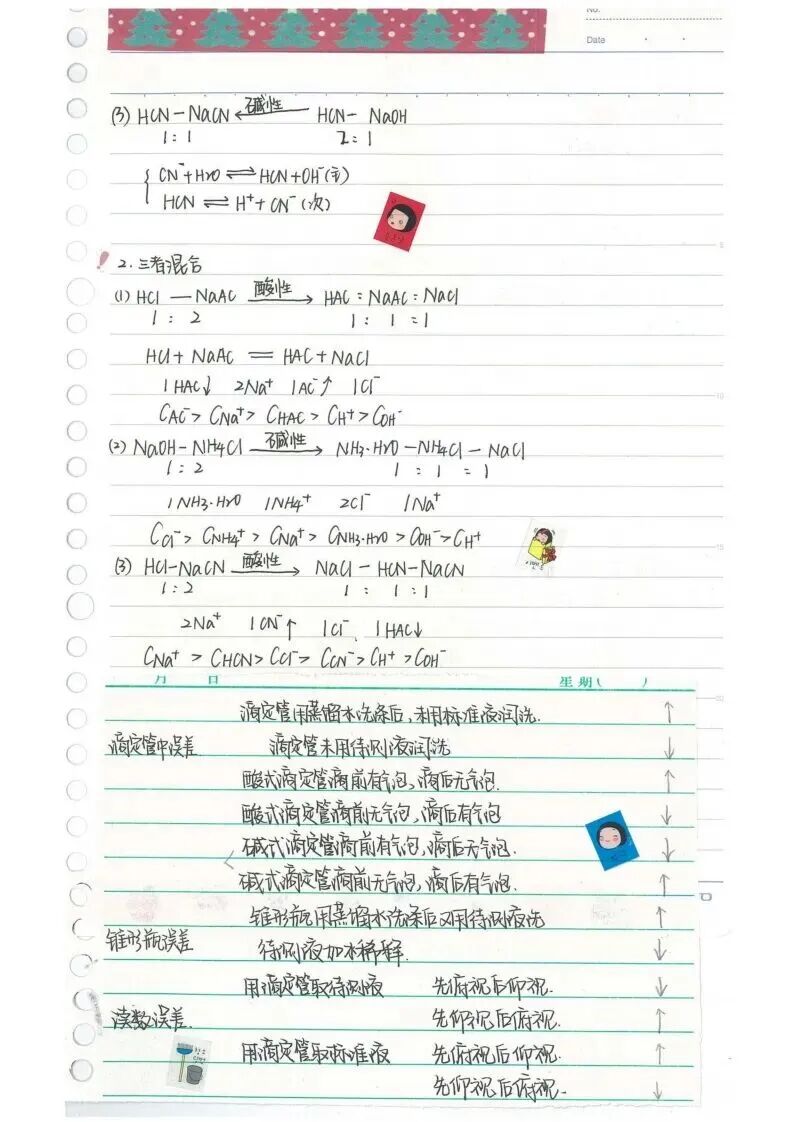 No.
Date
(3) HCN-NaCN ←碱性— HCN- NaOH
1:1 2:1
CN⁻+H2O ⇌ HCN+OH⁻(主)
HCN ⇌ H⁺+CN⁻(次)
2.三者混合
(1) HCl — NaAC —酸性→ HAC:NaAC:NaCl
1:2 1:1=1
HCl+NaAC = HAC+NaCl
1HAC↓ 2Na⁺ 1AC⁻↑ 1Cl⁻
CAC⁻> CNa⁺> CHAC> CH⁺> COH⁻
(2) NaOH-NH4Cl —碱性→ NH3·H2O-NH4Cl-NaCl
1:2 1:1=1
1NH3·H2O 1NH4⁺ 2Cl⁻ 1Na⁺
CCl⁻> CNH4⁺> CNa⁺> CNH3·H2O> COH⁻> CH⁺
(3) HCl-NaCN —酸性→ NaCl-HCN-NaCN
1:2 1:1:1
2Na⁺ 1CN⁻↑ 1Cl⁻. 1HAC↓
CNa⁺ > CHCN> CCl⁻> CCN⁻> CH⁺> COH⁻
月 日 星期( )
滴定管用蒸馏水洗涤后,未用标准液润洗. ↑
滴定管中误差. 滴定管未用待测液润洗 ↓
酸式滴定管滴前有气泡,滴后无气泡. ↑
酸式滴定管滴前无气泡,滴后有气泡 ↓
碱式滴定管滴前有气泡,滴后无气泡. ↓
碱式滴定管滴前无气泡,滴后有气泡. ↑
锥形瓶用蒸馏水洗涤后又用待测液洗 ↑
锥形瓶误差 待测液加水稀释. ↓
用滴定管取待测液 先俯视后仰视. ↓
读数误差. 先仰视后俯视. ↑
用滴定管取标准液 先俯视后仰视. ↑
先仰视后俯视. ↓